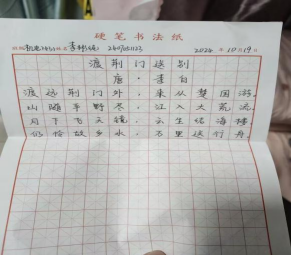 硬笔书法纸
2024 10 19
渡荆门送别
唐·李白
渡远荆门外，来从楚国游。
山随平野尽，江入大荒流。
月下飞天镜，云生结海楼。
仍怜故乡水，万里送行舟。